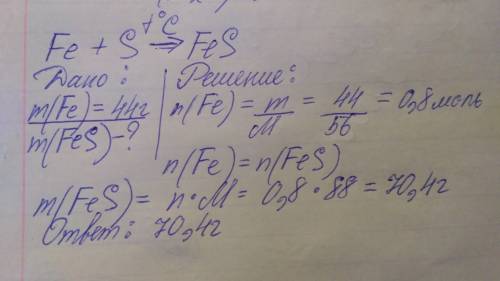 Fe + S t°C ⇒ FeS
Дано: Решение:
m(Fe) = 44г n(Fe) = m/M = 44/56 = 0,8 моль
m(FeS) - ?
n(Fe) = n(FeS)
m(FeS) = n·M = 0,8·88 = 70,4г
Ответ: 70,4г